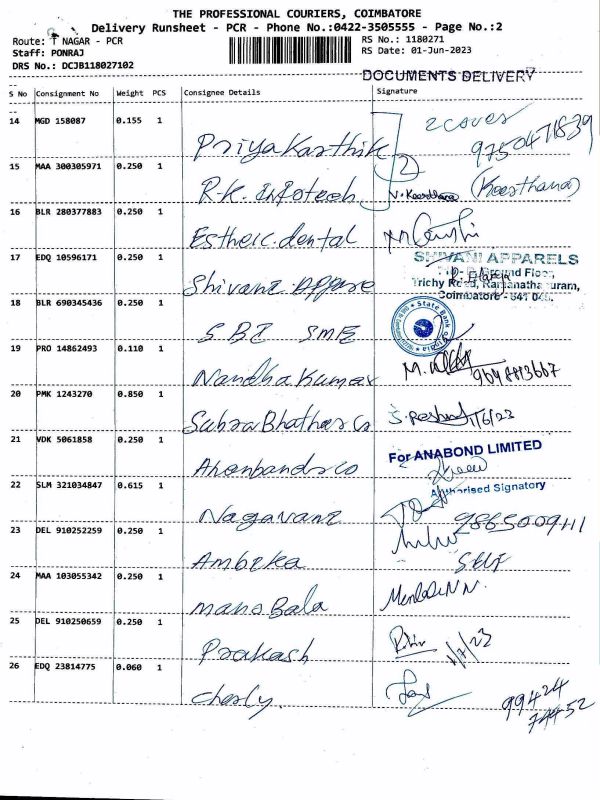 THE PROFESSIONAL COURIERS, COIMBATORE
Delivery Runsheet - PCR - Phone No.:0422-3505555 - Page No.:2
Route: T NAGAR - PCR
RS No.: 1180271
Staff: PONRAJ
RS Date: 01-Jun-2023
DRS No.: DCJB118027102
DOCUMENTS DELIVERY
S No Consignment No Weight PCS Consignee Details Signature
14 MGD 158087 0.155 1 Priya Karthik 2 covers 9750471839
15 MAA 300305971 0.250 1 R.K. Infotech 2 V. Keerthana (Keerthana)
16 BLR 280377883 0.250 1 Esthetic.dental
17 EDQ 10596171 0.250 1 Shivani Appare
SHIVANI APPARELS
Ground Floor,
Trichy Road, Ramanathapuram,
Coimbatore - 641 045.
18 BLR 690345436 0.250 1 SBI SME State Bank of India
19 PRO 14862493 0.110 1 Nandha Kumar M.
20 PMK 1243270 0.850 1 Subra Bhathar Co 1/6/23
21 VDK 5061858 0.250 1
For ANABOND LIMITED
Authorised Signatory
22 SLM 321034847 0.615 1 Nagavani 9865009411
23 DEL 910252259 0.250 1 Ambika Self
24 MAA 103055342 0.250 1 Mano Bala
25 DEL 910250659 0.250 1 Prakash 1/7/23
26 EDQ 23814775 0.060 1 Charly.
99424
74452